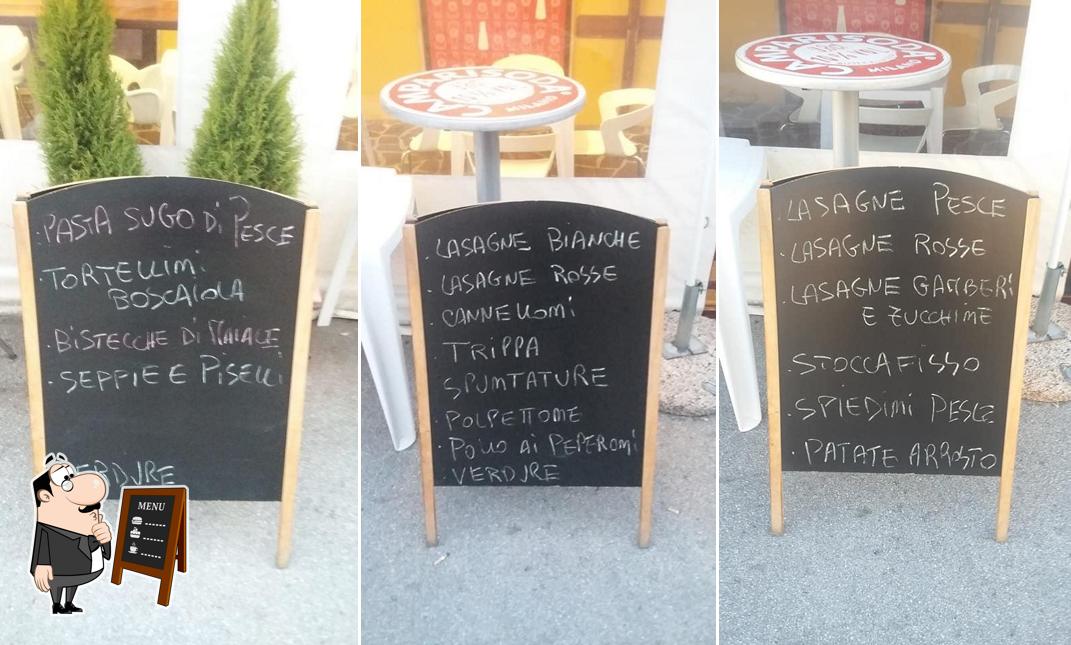 PASTA SUGO Di PESCE
TORTELLiMi
BOSCAiOLA
BiSTECCHE Di MAiALE
SEPPIE E PiSELLi
VERDURE
MENU
CAMPARISODA
MILANO
LASAGNE BiANCHE
LASAGNE ROSSE
CANNELLOMi
TRiPPA
SPUMTATURE
POLPETTOME
POLLO Ai PEPEROMi
VERDURE
CAMPARISODA
MILANO
LASAGNE PESCE
LASAGNE ROSSE
LASAGNE GAMBERi
E ZUCCHiME
STOCCAFiSSO
SPiEDiMi PESCE
PATATE ARROSTO